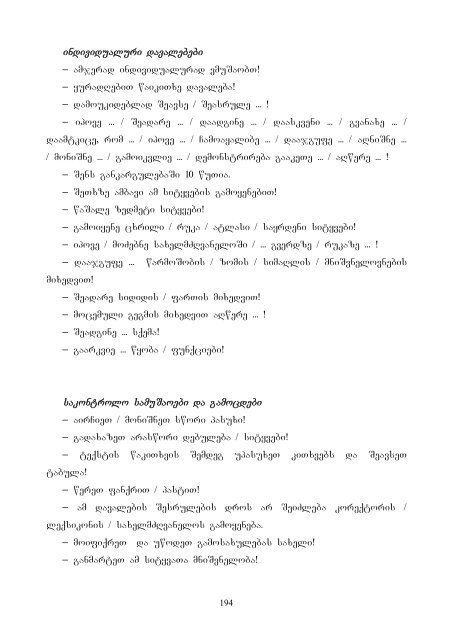 ინდივიდუალური დავალებები
– ამჯერად ინდივიდუალურად ვმუშაობთ!
– ყურადღებით წაიკითხე დავალება!
– დამოუკიდებლად შეავსე / შეასრულე ... !
– იპოვე ... / შეადარე ... / დაადგინე ... / დაასკვენი ... / გვანახე ... /
დაამტკიცე, რომ ... / იპოვე ... / ჩამოაყალიბე ... / დააჯგუფე ... / აღნიშნე ...
/ მონიშნე ... / გამოიკვლიე ... / დემონსტრირება გააკეთე ... / აღწერე ... !
– შენს განკარგულებაში 10 წუთია.
– შეთხზე ამბავი ამ სიტყვების გამოყენებით!
– წაშალე ზედმეტი სიტყვები!
– გამოიყენე ცხრილი / რუკა / ატლასი / საყრდენი სიტყვები!
– იპოვე / მოძებნე სახელმძღვანელოში / ... გვერდზე / რუკაზე ... !
– დააჯგუფე ... წარმოშობის / ზომის / სიმაღლის / მნიშვნელოვნების
მიხედვით!
– შეადარე სიდიდის / ფართის მიხედვით!
– მოცემული გეგმის მიხედვით აღწერე ... !
– შეადგინე ... სქემა!
– გაარკვიე ... წყობა / ფუნქციები!
საკონტროლო სამუშაოები და გამოცდები
– აირჩიეთ / მონიშნეთ სწორი პასუხი!
– გადახაზეთ არასწორი დებულება / სიტყვები!
– ტექსტის წაკითხვის შემდეგ უპასუხეთ კითხვებს და შეავსეთ
ტაბულა!
– წერეთ ფანქრით / პასტით!
– ამ დავალების შესრულების დროს არ შეიძლება კორექტორის /
ლექსიკონის / სახელმძღვანელოს გამოყენება.
– მოიფიქრეთ და უწოდეთ გამოსახულებას სახელი!
– განმარტეთ ამ სიტყვათა მნიშვნელობა!
194